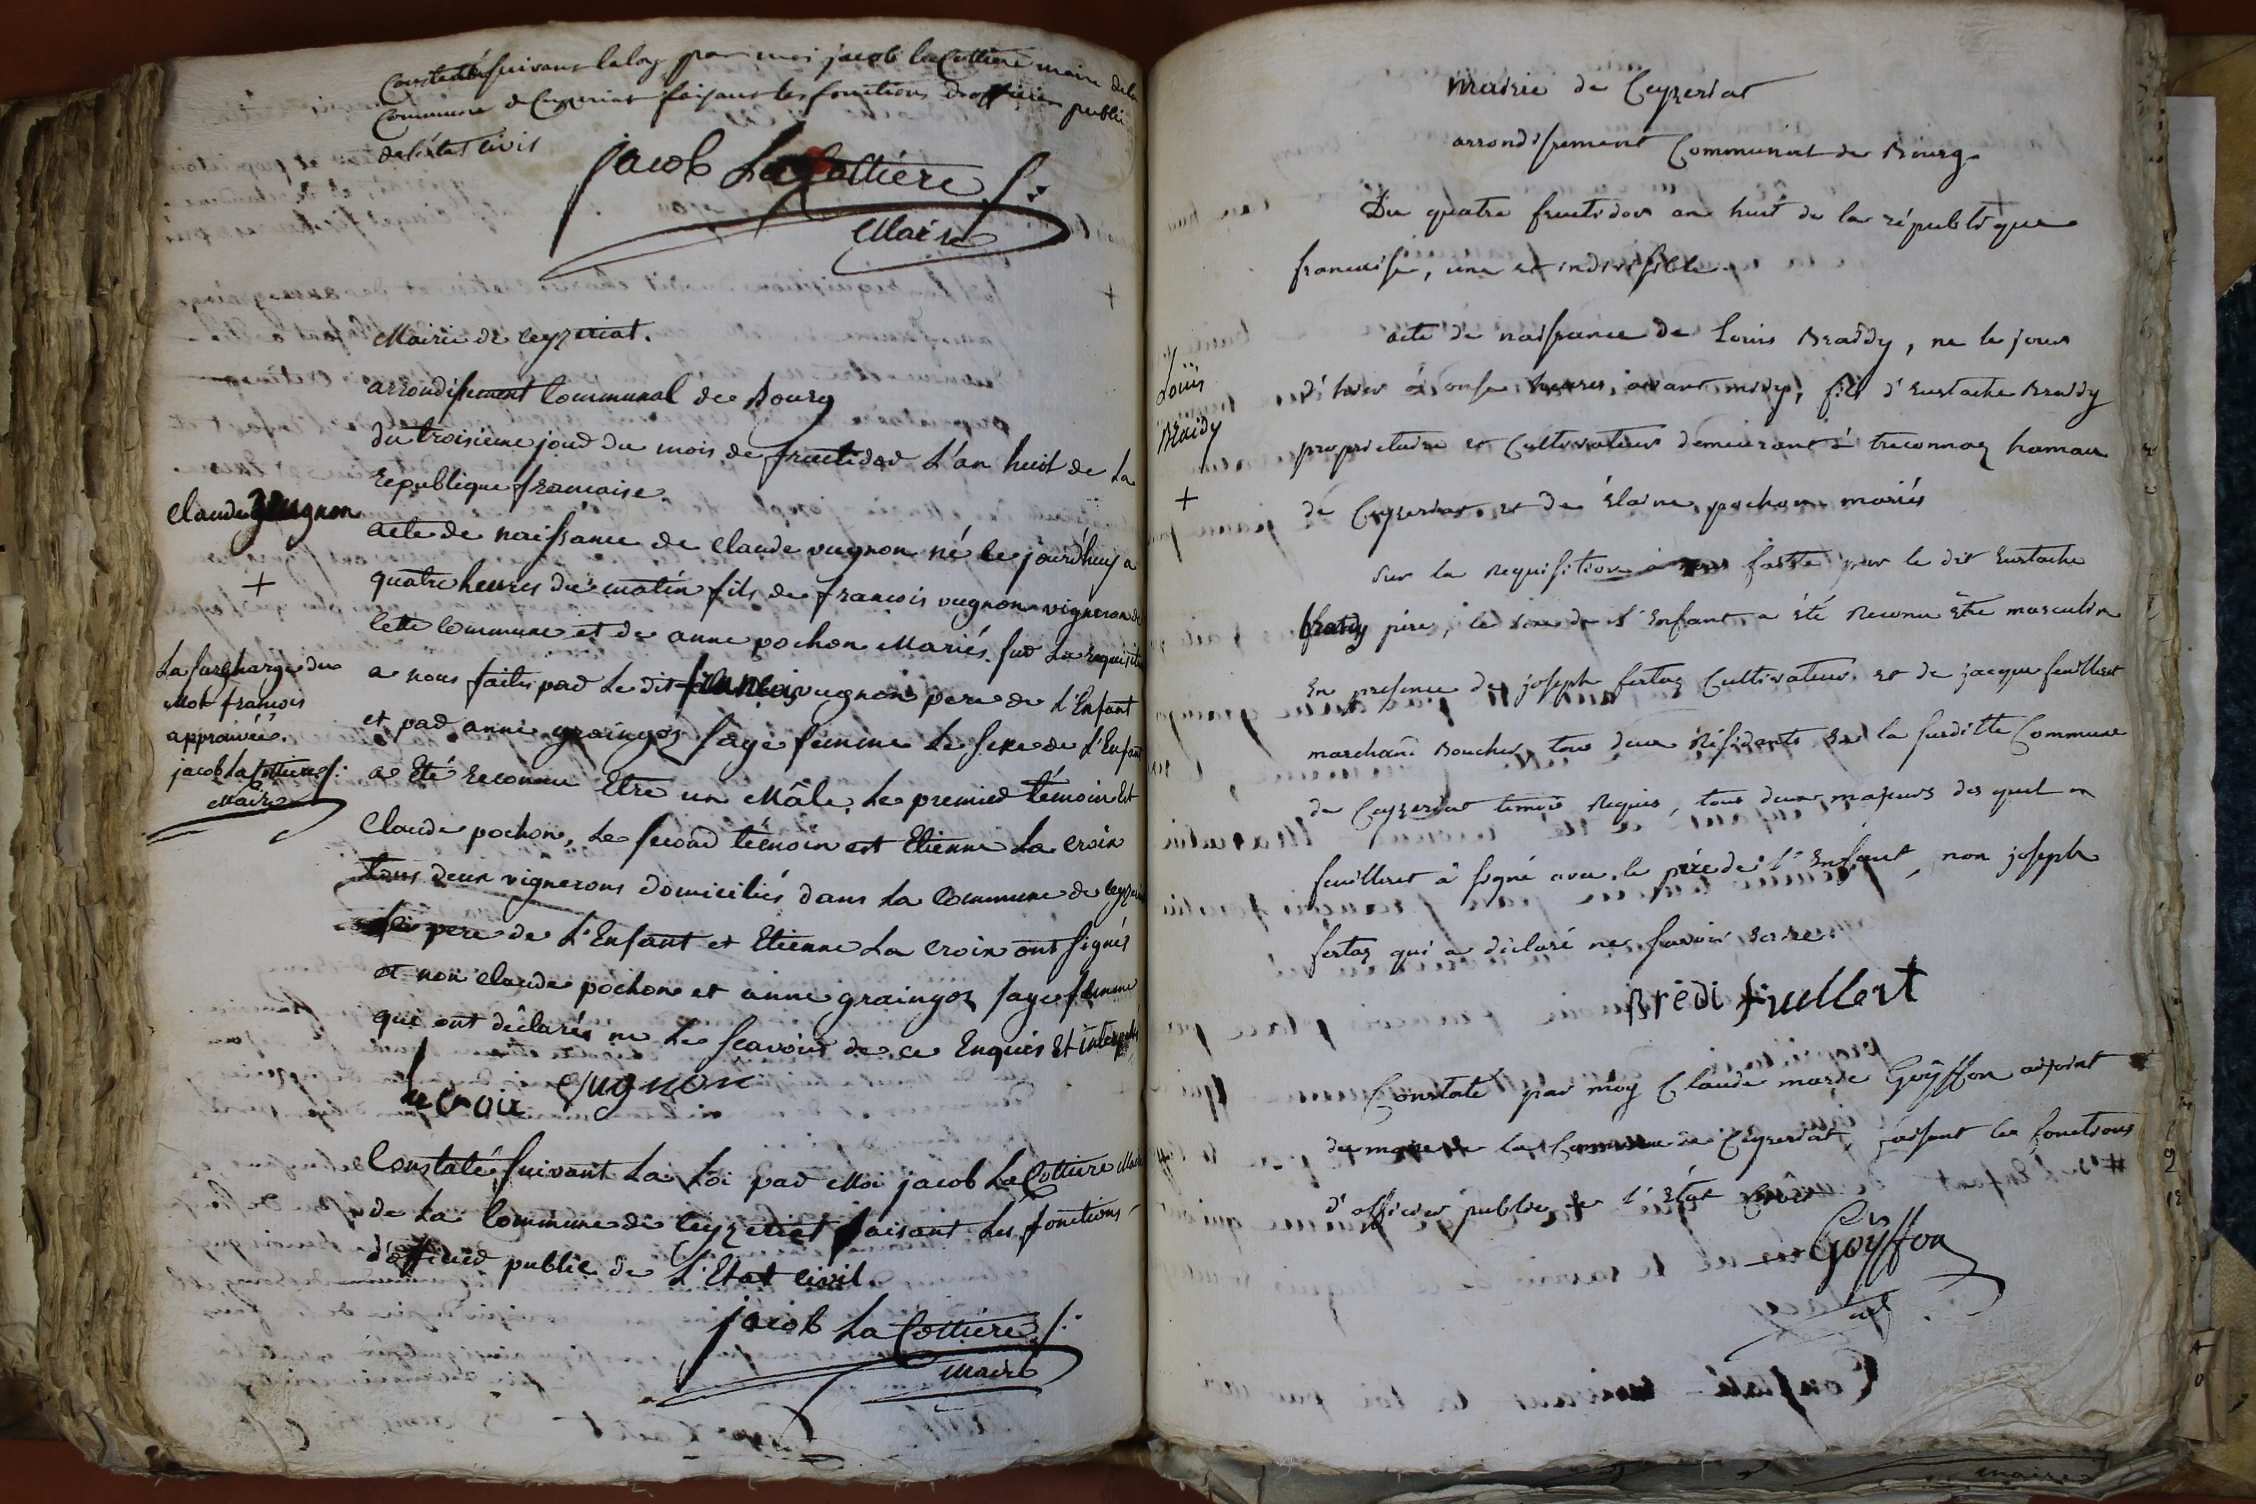 Constaté suivant la loy par moi jacob la Cottiere maire de la
Commune de Ceyzeriat faisant les fonctions d'officier public
de l'état civil
jacob La Cottiére
Maire
Mairie de ceyzeriat.
arrondissement Communal de Bourg
du troisieme jour du mois de fructidor L'an huit de La
Republique francaise.
Claude Vugnon
+
acte de naissance de Claude vugnon né le jourdhuy a
quatre heures du matin fils de francois vugnon vigneron de
cette Commune et de anne pochon Mariés. sur La requisition
a nous faitte par Le dit francois vugnon pere de L'Enfant
et par anne graingoz sage femme Le sexe de L'Enfant
a Eté reconnu Etre un Mâle. Le premier témoin Est
Claude pochon, Le second témoin est Etienne La croix
tous deux vignerons domiciliés dans La Commune de ceyzeriat
pere de L'Enfant et Etienne La croix ont signés
et non claude pochon et anne graingoz sage femme
qui ont déclarés ne Le scavoir de ce Enquis Et interpellés
La surcharge du
Mot francois
approuvée.
jacob La Cottiere
Maire
la croix vugnon
Constaté suivant La Loi par Moi jacob La Cottiere Maire
de La Commune de Ceyzeriat faisant Les fonctions
d'officier public de L'Etat civil.
jacob La Cottiére
maire
Mairie de Ceyzeriat
arrondissement Communal de Bourg
Du quatre fructidor an huit de la république
francaise, une et indivisible
Louis
Braidy
+
acte de naissance de Louis Braidy, ne le jour
d'hier à onse heures avant midy, fils d'Eustache Braidy
proprietaire et Cultivateur demeurant à treconnaz hamau
de Ceyzeriat et de Elaine pochon mariés
sur la requisition à nous faitte par le dit Eustache
Braidy père, le sexe de l'Enfant a été reconu être masculin
En presence de joseph fertaz Cultivateur et de jacque feuilleret
marchand Boucher tous deux résidents de la susditte Commune
de Ceyzeriat temoin requis, tous deux majeurs des quel
feuilleret à signé avec le père de l'Enfant, non joseph
fertaz qui a déclaré ne savoir
Brédi fruilleret
Constaté par moy Claude marie Goÿffon adjoint
du maire de la Commune de Ceyzeriat, faisant les fonctions
d'officier public de l'Etat Civil
Goÿffon
adj